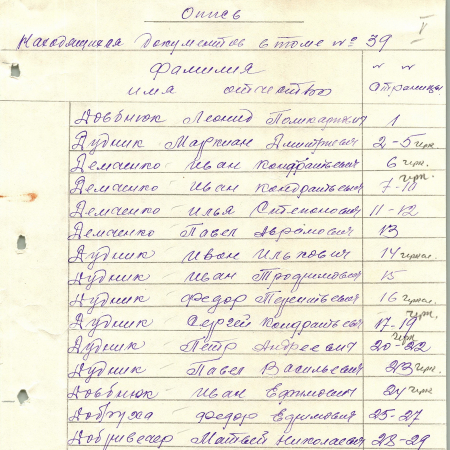 Опись
Находящихся документов в томе № 39
V
фамилия
имя отчество
№ №
страницы
Довбнюк Леонид Поликарпович 1
Дудник Маркиан Дмитриевич 2-5 грн.
Демченко Иван Кондратьевич 6 грн.
Демченко Иван Кондратьевич 7-10 грн.
Демченко Илья Степонович 11-12
Демченко Павел Аврамович 13
Дудник Иван Илькович 14 грн.
Дудник Иван Трофимович 15
Дудник Федор Терентьевич 16 грн.
Дудник Сергей Кондратьевич 17-19 грн.
Дудник Петр Андреевич 20-22 грн.
Дудник Павел Васильевич 23 грн.
Довбнюк Иван Ефимович 24 грн.
Добруха Федор Ефимович 25-27
Добривечер Матвей Николаевич 28-29